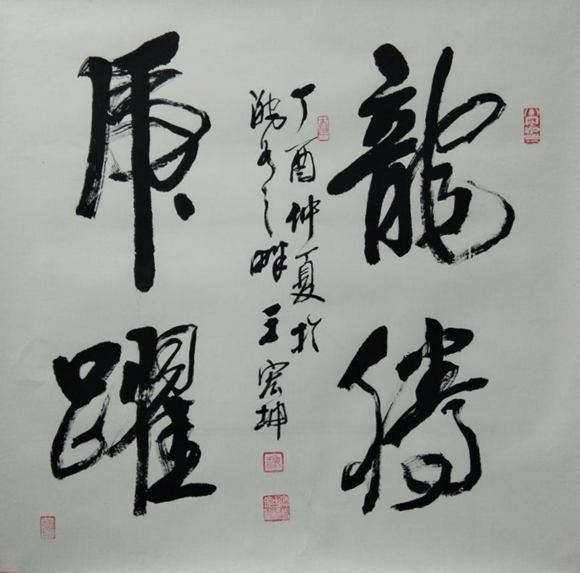 龍騰
丁酉仲夏於
之畔 王宏坤
虎躍